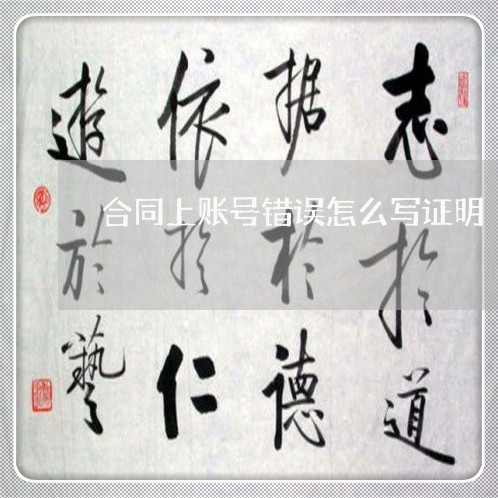 志於道
据於德
依於仁
遊於藝
合同上账号错误怎么写证明